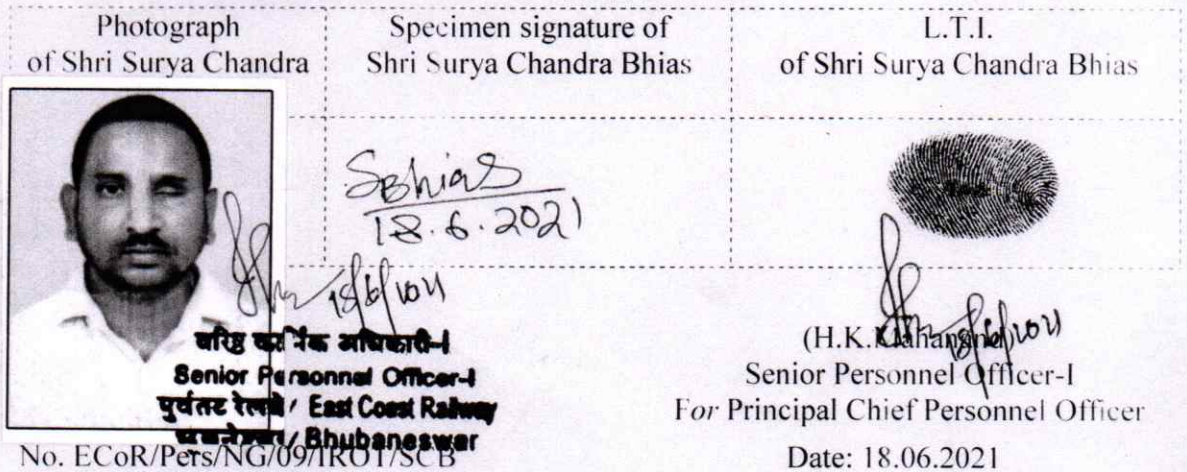 Photograph
of Shri Surya Chandra
Specimen signature of
Shri Surya Chandra Bhias
L.T.I.
of Shri Surya Chandra Bhias
SBhias
18.6.2021
18/6/2021
वरिष्ठ कार्मिक अधिकारी-I
Senior Personnel Officer-I
पुर्वतट रेलवे / East Coast Railway
/ Bhubaneswar
18/6/2021
(H.K.
Senior Personnel Officer-I
For Principal Chief Personnel Officer
No. ECoR/Pers/NG/09/IROT/SCB
Date: 18.06.2021